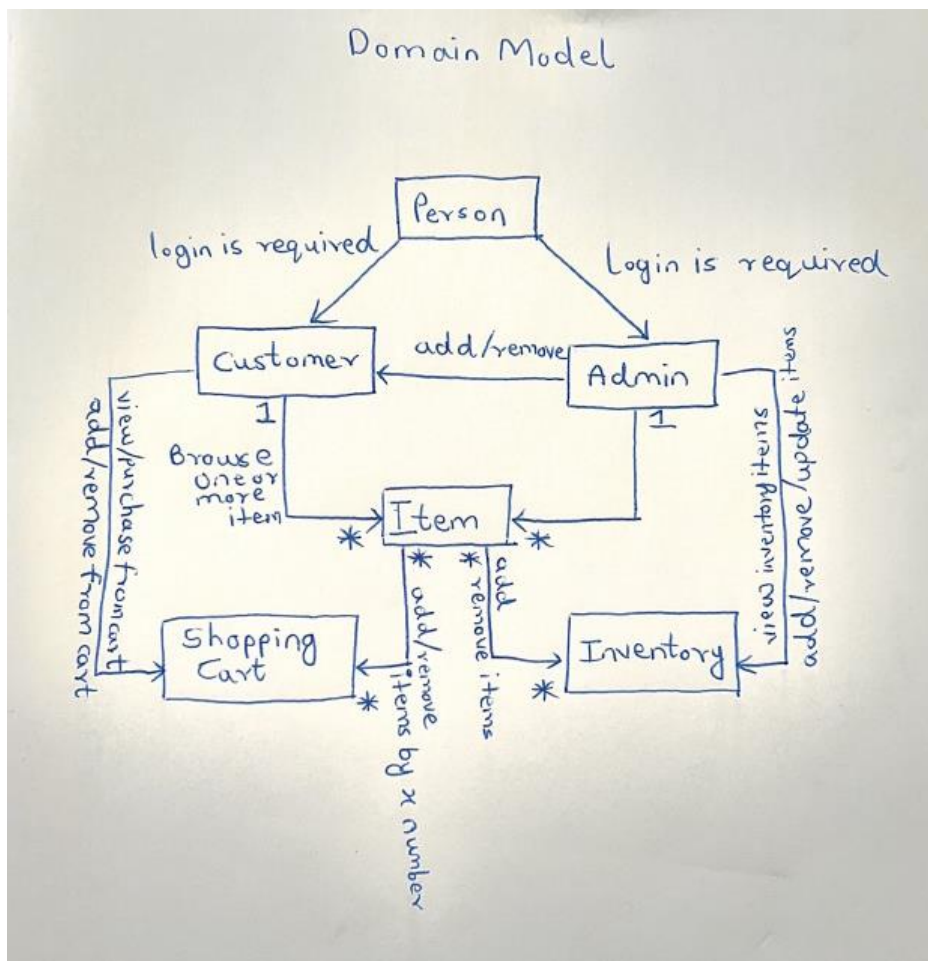 Domain Model
Person
login is required
Login is required
Customer
add/remove
Admin
1
1
Browse
one or
more
item
Item
*
*
*
*
view/purchase from cart
add/remove from cart
add/remove
items by x number
add
remove items
view inventory items
add/remove/update items
Shopping
Cart
*
Inventory
*